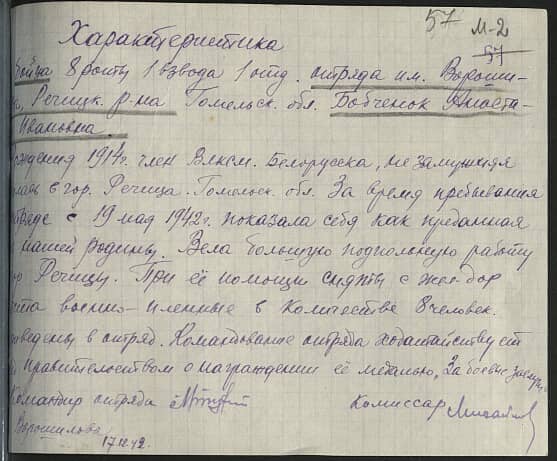 57 М-2
57
Характеристика
Бойца 8 роты 1 взвода 1 отд. отряда им. Вороши-
Речицк. р-на Гомельск. обл. Бобченок Анаста-
Ивановна
рождения 1914г. член Влксм. Белорусска, не замужняя
в гор. Речица Гомельск. обл. За время пребывания
с 19 мая 1942г. показала себя как преданная
нашей родины. Вела большую подпольную работу
Речицы. При её помощи сняты с жел-дор
военно-пленные в количестве 8 человек.
в отряд. Командование отряда ходатайствует
правительством о награждении её медалью, За боевые заслуги
Командир отряда Комиссар
Ворошилова
17.12.42